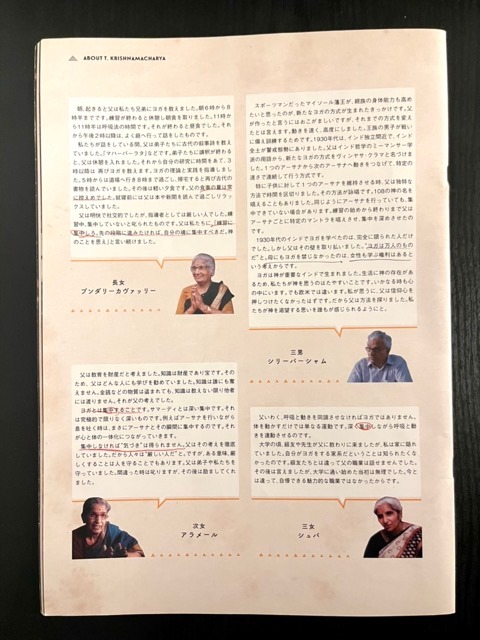 ABOUT T. KRISHNAMACHARYA
朝、起きると父は私たち兄弟にヨガを教えました。朝6時から8
時半までです。練習が終わると休憩し朝食を取りました。11時か
ら11時半は呼吸法の時間です。それが終わると昼食でした。それ
から午後2時以降は、よく庭へ行って話をしたものです。
私たちが話をしている間、父は弟子たちに古代の叙事詩を教え
ていました。『マハーバーラタ』などです。弟子たちに講釈が終わる
と、父は休憩を入れました。それから自分の研究に時間をあて、3
時以降は 再びヨガを教えます。ヨガの理論と実践を指導しまし
た。5時からは道場へ行き8時まで過ごし、帰宅すると再び古代の
書物を読んでいました。その後は軽い夕食です。父の食事の量は常
に控えめでした。就寝前には父は本や新聞を読んで過ごしリラッ
クスしていました。
父は明快で社交的でしたが、指導者としては厳しい人でした。練
習中、集中していないと叱られたものです。父は私たちに、「練習に
集中しろ、先の段階に進みたければ、自分の魂に集中すべきだ。神
のことを思え」と言い続けました。
長女
プンダリーカヴァッリー
スポーツマンだったマイソール藩王が、親族の身体能力も高め
たいと思ったのが、新たなヨガの方式が生まれたきっかけです。父
が作ったと言うにはおこがましいですが、それまでの方式を変え
たとは言えます。動きを速く、高度にしました。王族の男子が戦い
に備え訓練するためです。1930年代、インド独立間近で、インド
全土が警戒態勢にありました。父はインド哲学のミーマンサー学
派の用語から、新たなヨガの方式をヴィンヤサ・クラマと名づけま
した。1つのアーサナから次のアーサナへ動きをつなげて、特定の
速さで連続して行う方式です。
特に子供に対して1つのアーサナを維持させる時、父は独特な
方法で時間を区切りました。その方法が詠唱です。10回の神の名を
唱えることもありました。同じようにアーサナを行っていても、集
中できていない場合があります。練習の始めから終わりまで父は
アーサナごとに特定のマントラを唱えさせ、集中を深めさせたの
です。
1930年代のインドでヨガを学べたのは、完全に限られた人だけ
でした。しかし父はその壁を取り払いました。“ヨガは万人のもの
だ”と。母にもヨガを禁じなかったのは、女性も学ぶ権利はあると
いう考えからです。
ヨガは神が重要なインドで生まれました。生活に神の存在があ
るため、私たちが神を思うのはたやすいことです。いかなる時も心
の中にいます。でも欧米では違います。私が思うに、父は信仰心を
押しつけたくなかったはずです。だから父は方法を探りました。私
たちが神を渇望する思いを誰もが感じられるようにと。
三男
シリーバーシャム
父は教育を財産だと考えました。知識は財産であり宝です。その
ため、父はどんな人にも学びを勧めていました。知識は誰にも奪
えません。金銭などの物質は盗まれても、知識は教えない限り他者
には渡りません。それが父の考えでした。
ヨガとは集中することです。サマーディとは深い集中です。それ
は究極的で限りなく深いものです。例えばアーサナを行いながら
息を吐く時は、まさにアーサナとその瞬間に集中するのです。それ
が心と体の一体化につながっていきます。
集中しなければ“気づき”は得られません。父はその考えを徹底
していました。だから人々は“厳しい人だ”と。ですが、ある意味、厳
しくすることは人を守ることでもあります。父は弟子や私たちを
守っていました。間違った時は叱りますが、その後は励ましてくれ
ました。
次女
アラメール
父いわく、呼吸と動きを同調させなければヨガではありません。
体を動かすだけでは単なる運動です。深く集中しながら呼吸と動
きを連動させるのです。
大学の頃、級友や先生が父に教わりに来ましたが、私は家に隠れ
ていました。自分がヨガをする家系だということは知られたくな
かったのです。級友たちとは違って父の職業は話せませんでした。
その後は言えましたが、大学に通い始めた当初は無理でした。今と
は違って、自慢できる魅力的な職業ではなかったからです。
三女
シュバ